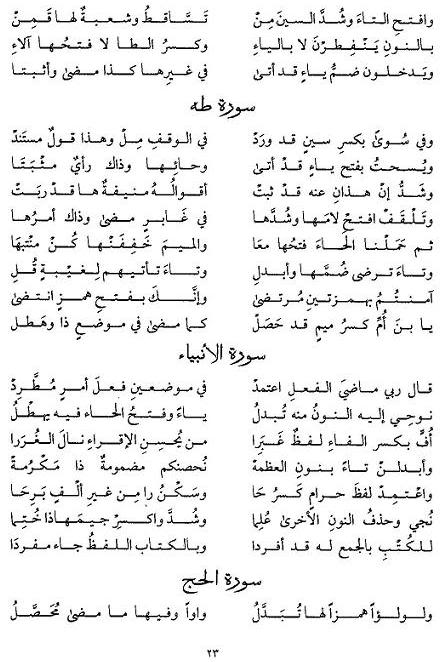 وافتح التاءَ وشُدَّ السينَ مِنْ تَسَّاقَطُ وشعبةٌ لها قَمِنْ
بالنونِ يَنْفَطِرْنَ لا بالياءِ وكسرُ الطا لا فتحُها آلاءِ
ويَدخلون ضمُّ ياءٍ قد أتىٰ في غيرِها كذا مضىٰ وأثبتا
سورة طه
وفي سُوىً بكسرِ سينٍ قد ورَدْ في الوقفِ مِلْ وهذا قولٌ مستَنَدْ
ويُسحتُ بفتحِ ياءٍ قدْ أتىٰ وحائِها وذاك رأيٌ مثبَتَا
وشدُّ إنّ هذانِ عنه قد ثبتْ أقوالُهُ منيفةٌ ها قدْ ربَتْ
وتَلْقَفْ افتحْ لامَها وشُدَّها في غابرٍ مضىٰ وذاك أمرُها
ثم حَمَلْنا الحاءَ فتحُها معَا والميمَ خَفِفَنْها كُنْ منْتَبِهَا
وتاءَ ترضى ضُمَّها وأبدلِ وتاءَ تأتيهم لِغَيبةٍ قُلِ
آمنتُمُ بهمزتينِ مُرتضىٰ وإنَّكَ بفتحِ همزٍ انتضىٰ
يا بنَ أُمِّ كسرُ ميمٍ قد حَصَلْ كما مضىٰ في موضعٍ ذا وهَطلْ
سورة الأنبياء
قال ربي ماضيَ الفعلِ اعتمدْ في موضعين فعلَ أمرٍ مُطَّرِدْ
نوحي إليه النونُ منه تُبدلُ ياءً وفتحُ الحاءِ فيه يهطِلُ
أفِّ بكسرِ الفاءِ لفظٌ غَبَرا من يُحسِنِ الإقراءَ نالَ الغُرَرا
وأبدلنْ تاءً بنونِ العظمة نُحصنكم مضمومةٌ ذا مَكْرُمةْ
واعتمدْ لفظَ حرامٍ كسرُ حَا وسَكْنُ را من غيرِ ألفٍ بَرِحَا
نُجي وحذفُ النونِ الأخرىٰ عُلِما وشُدَّ واكسرْ جيمَها ذا خُتِما
للكُتُبِ بالجمعِ له قد أفردا وبالكتابِ اللفظُ جاء مفردَا
سورة الحج
ولؤلؤاً همزاً لها تُبَدَّلُ واواً وفيها ما مضىٰ مُحَصَّلُ
٢٣